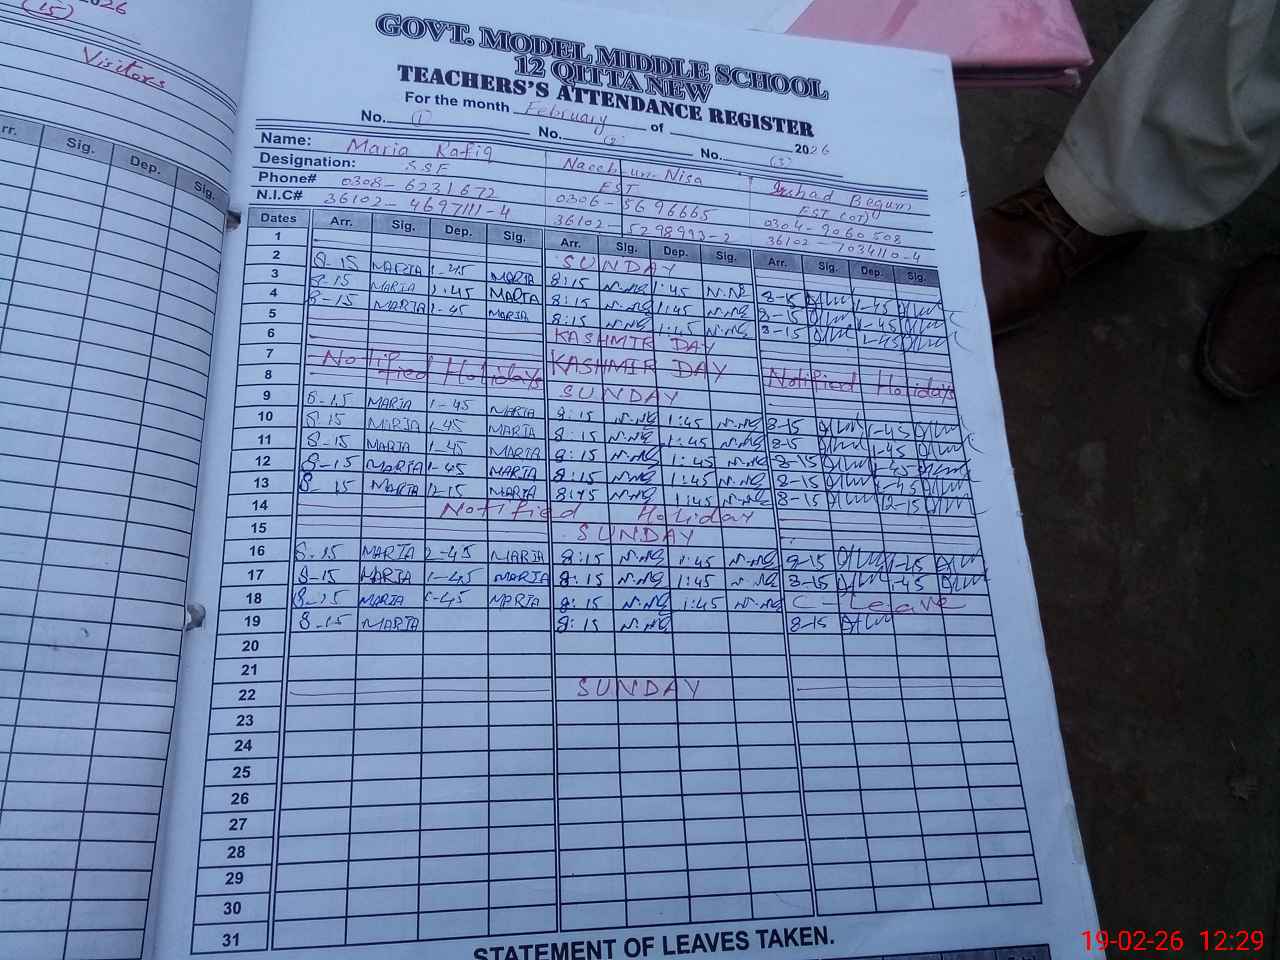 (15)
2026
Visitors
rr. Sig. Dep. Sig.
GOVT. MODEL MIDDLE SCHOOL
12 QITTA NEW
TEACHERS'S ATTENDANCE REGISTER
For the month February of 2026
No. (1) No. (2) No. (3)
Name: Maria Rafiq Naeeb-un-Nisa Irshad Begum
Designation: SSE EST EST (OT)
Phone# 0308-6231672 0306-5696665 0304-9060508
N.I.C# 36102-4697111-4 36102-5298993-2 36102-7034110-4
Dates Arr. Sig. Dep. Sig. Arr. Sig. Dep. Sig. Arr. Sig. Dep. Sig.
1 SUNDAY
2 8-15 MARIA 1-45 MARIA 8:15 N.NS 1:45 N.NS 8-15 1-45
3 8-15 MARIA 1:45 MARIA 8:15 N.NS 1:45 N.NS 8-15 1-45
4 8-15 MARIA 1-45 MARIA 8:15 N.NS 1:45 N.NS 8-15 1-45
5 KASHMIR DAY
6 Notified Holidays KASHMIR DAY Notified Holidays
7
8 SUNDAY
9 8-15 MARIA 1-45 MARIA 8:15 N.NS 1:45 N.NS 8-15 1-45
10 8-15 MARIA 1-45 MARIA 8:15 N.NS 1:45 N.NS 8-15 1-45
11 8-15 MARIA 1-45 MARIA 8:15 N.NS 1:45 N.NS 8-15 1-45
12 8-15 MARIA 1-45 MARIA 8:15 N.NS 1:45 N.NS 8-15 1-45
13 8-15 MARIA 12-15 MARIA 8:15 N.NS 1:45 N.NS 8-15 12-15
14 Notified Holiday
15 SUNDAY
16 8-15 MARIA 1-45 MARIA 8:15 N.NS 1:45 N.NS 8-15 1-45
17 8-15 MARIA 1-45 MARIA 8:15 N.NS 1:45 N.NS 8-15 1-45
18 8-15 MARIA 1-45 MARIA 8:15 N.NS 1:45 N.NS C-Leave
19 8-15 MARIA 8:15 N.NS 8-15
20
21
22 SUNDAY
23
24
25
26
27
28
29
30
31
STATEMENT OF LEAVES TAKEN.
19-02-26 12:29